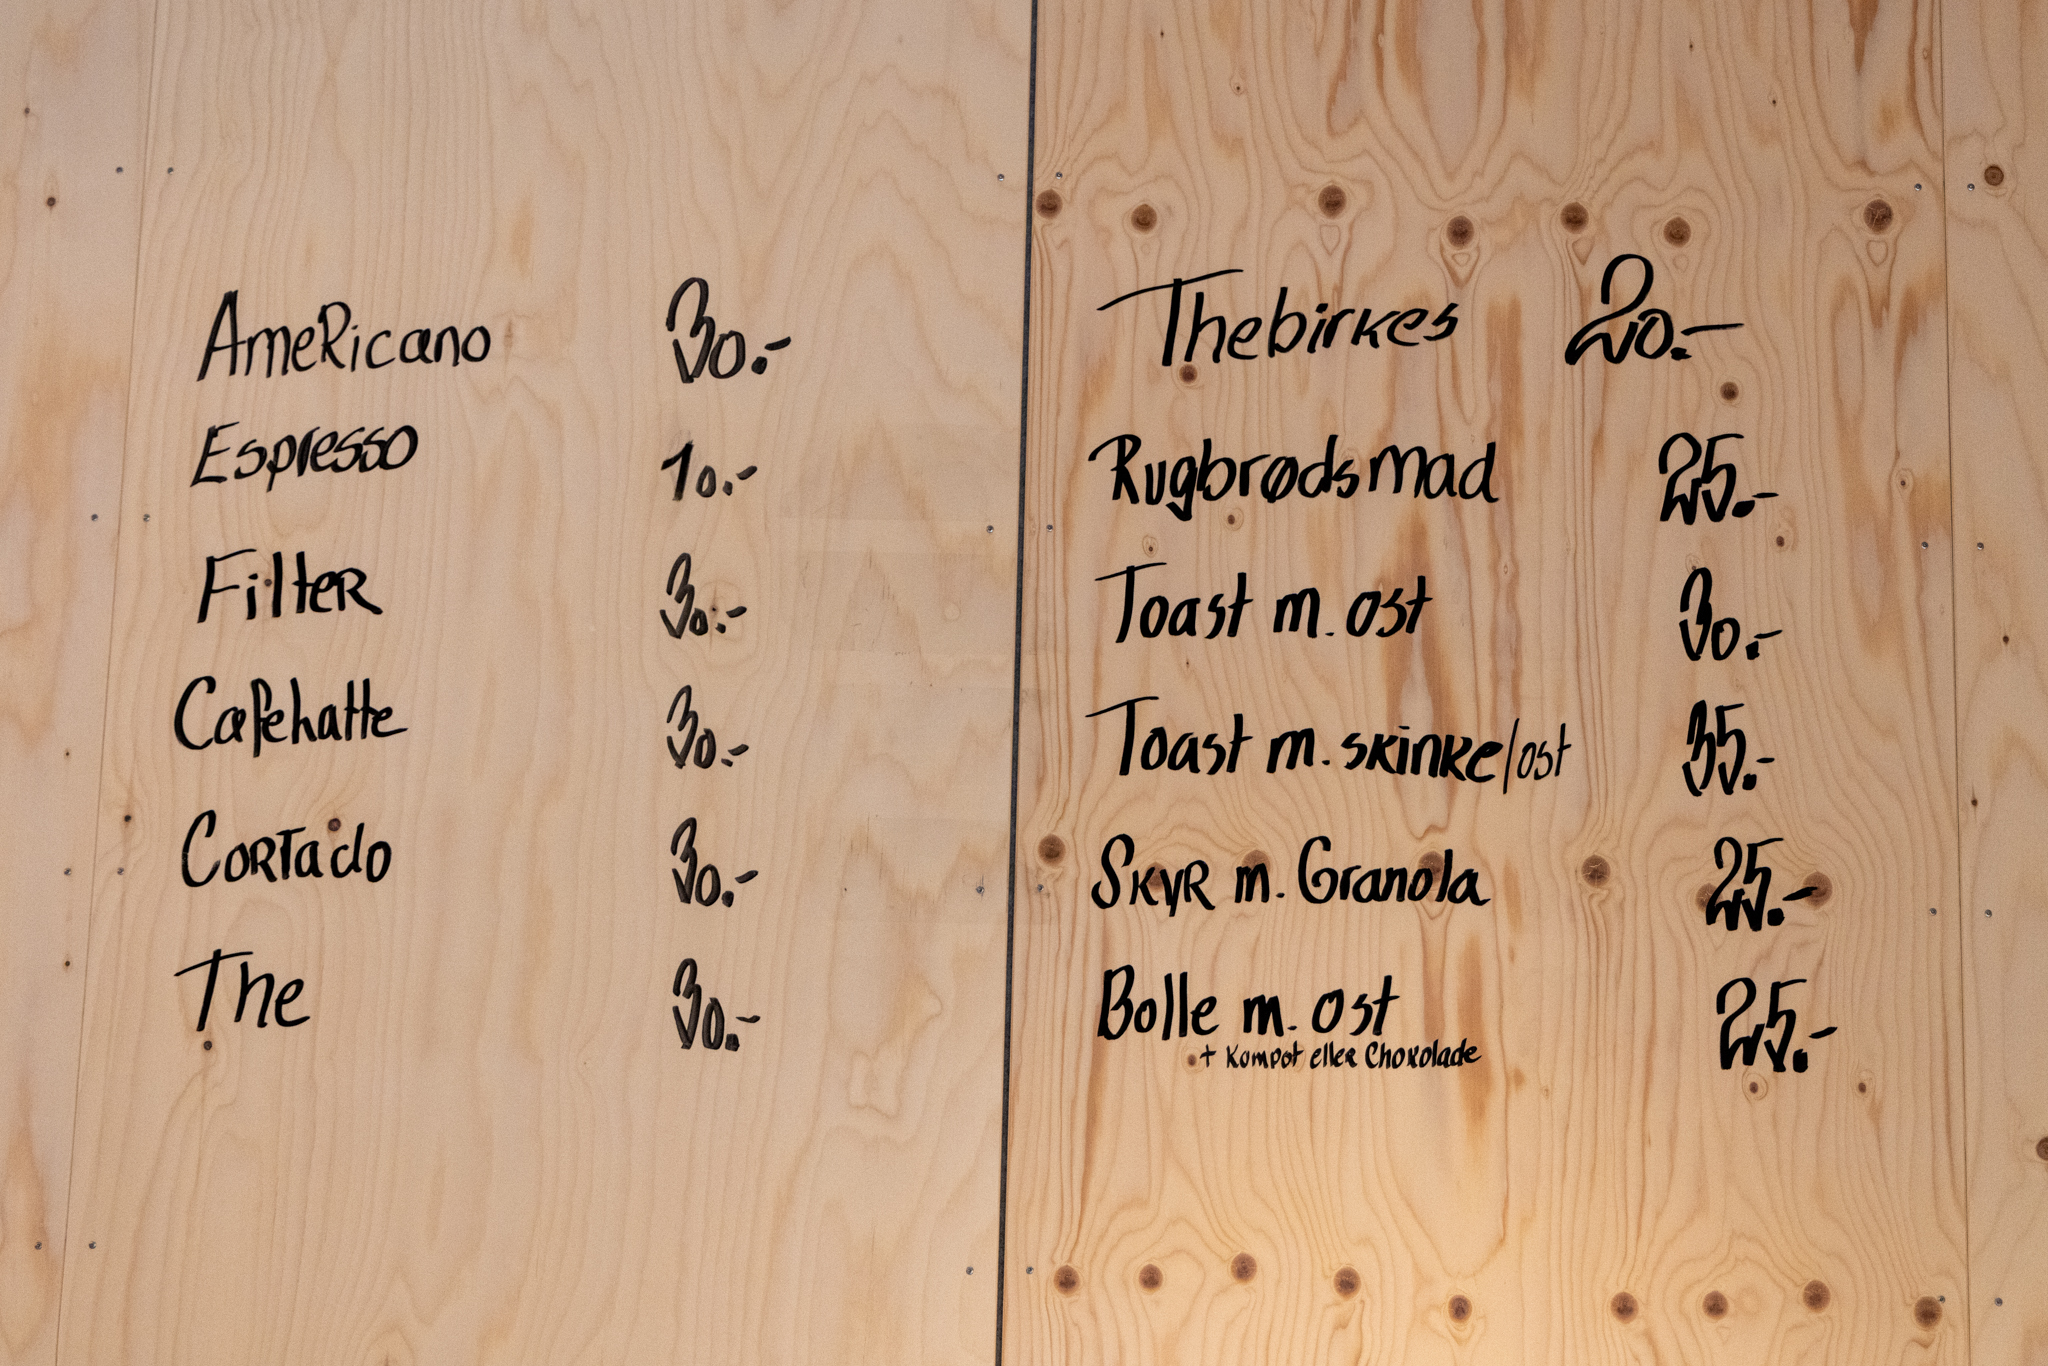 AmeRicano 30.-
Espresso 10.-
FilteR 30.-
Cafehatte 30.-
CoRTado 30.-
The 30.-
Thebirkes 20.-
Rugbrødsmad 25.-
Toast m. ost 30.-
Toast m. skinke/ost 35.-
SkyR m. Granola 25.-
Bolle m. ost 25.-
+ Kompot elleR Chokolade